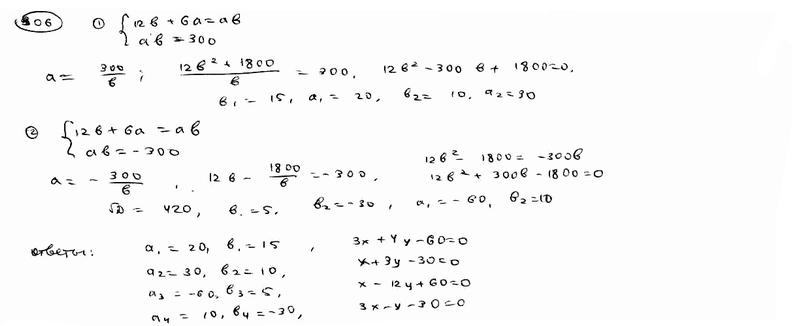 506 ① { 12в + 6а = ав
ав = 300
а = 300/в ; (12в² + 1800)/в = 300, 12в² - 300в + 1800 = 0,
в₁ = 15, а₁ = 20, в₂ = 10, а₂ = 30
② { 12в + 6а = ав
ав = -300
а = - 300/в , 12в - 1800/в = -300, 12в² - 1800 = -300в
12в² + 300в - 1800 = 0
√D = 420, в₁ = 5, в₂ = -30, а₁ = -60, в₂ = 10
ответы: а₁ = 20, в₁ = 15, 3x + 4y - 60 = 0
а₂ = 30, в₂ = 10, x + 3y - 30 = 0
а₃ = -60, в₃ = 5, x - 12y + 60 = 0
а₄ = 10, в₄ = -30, 3x - y - 30 = 0